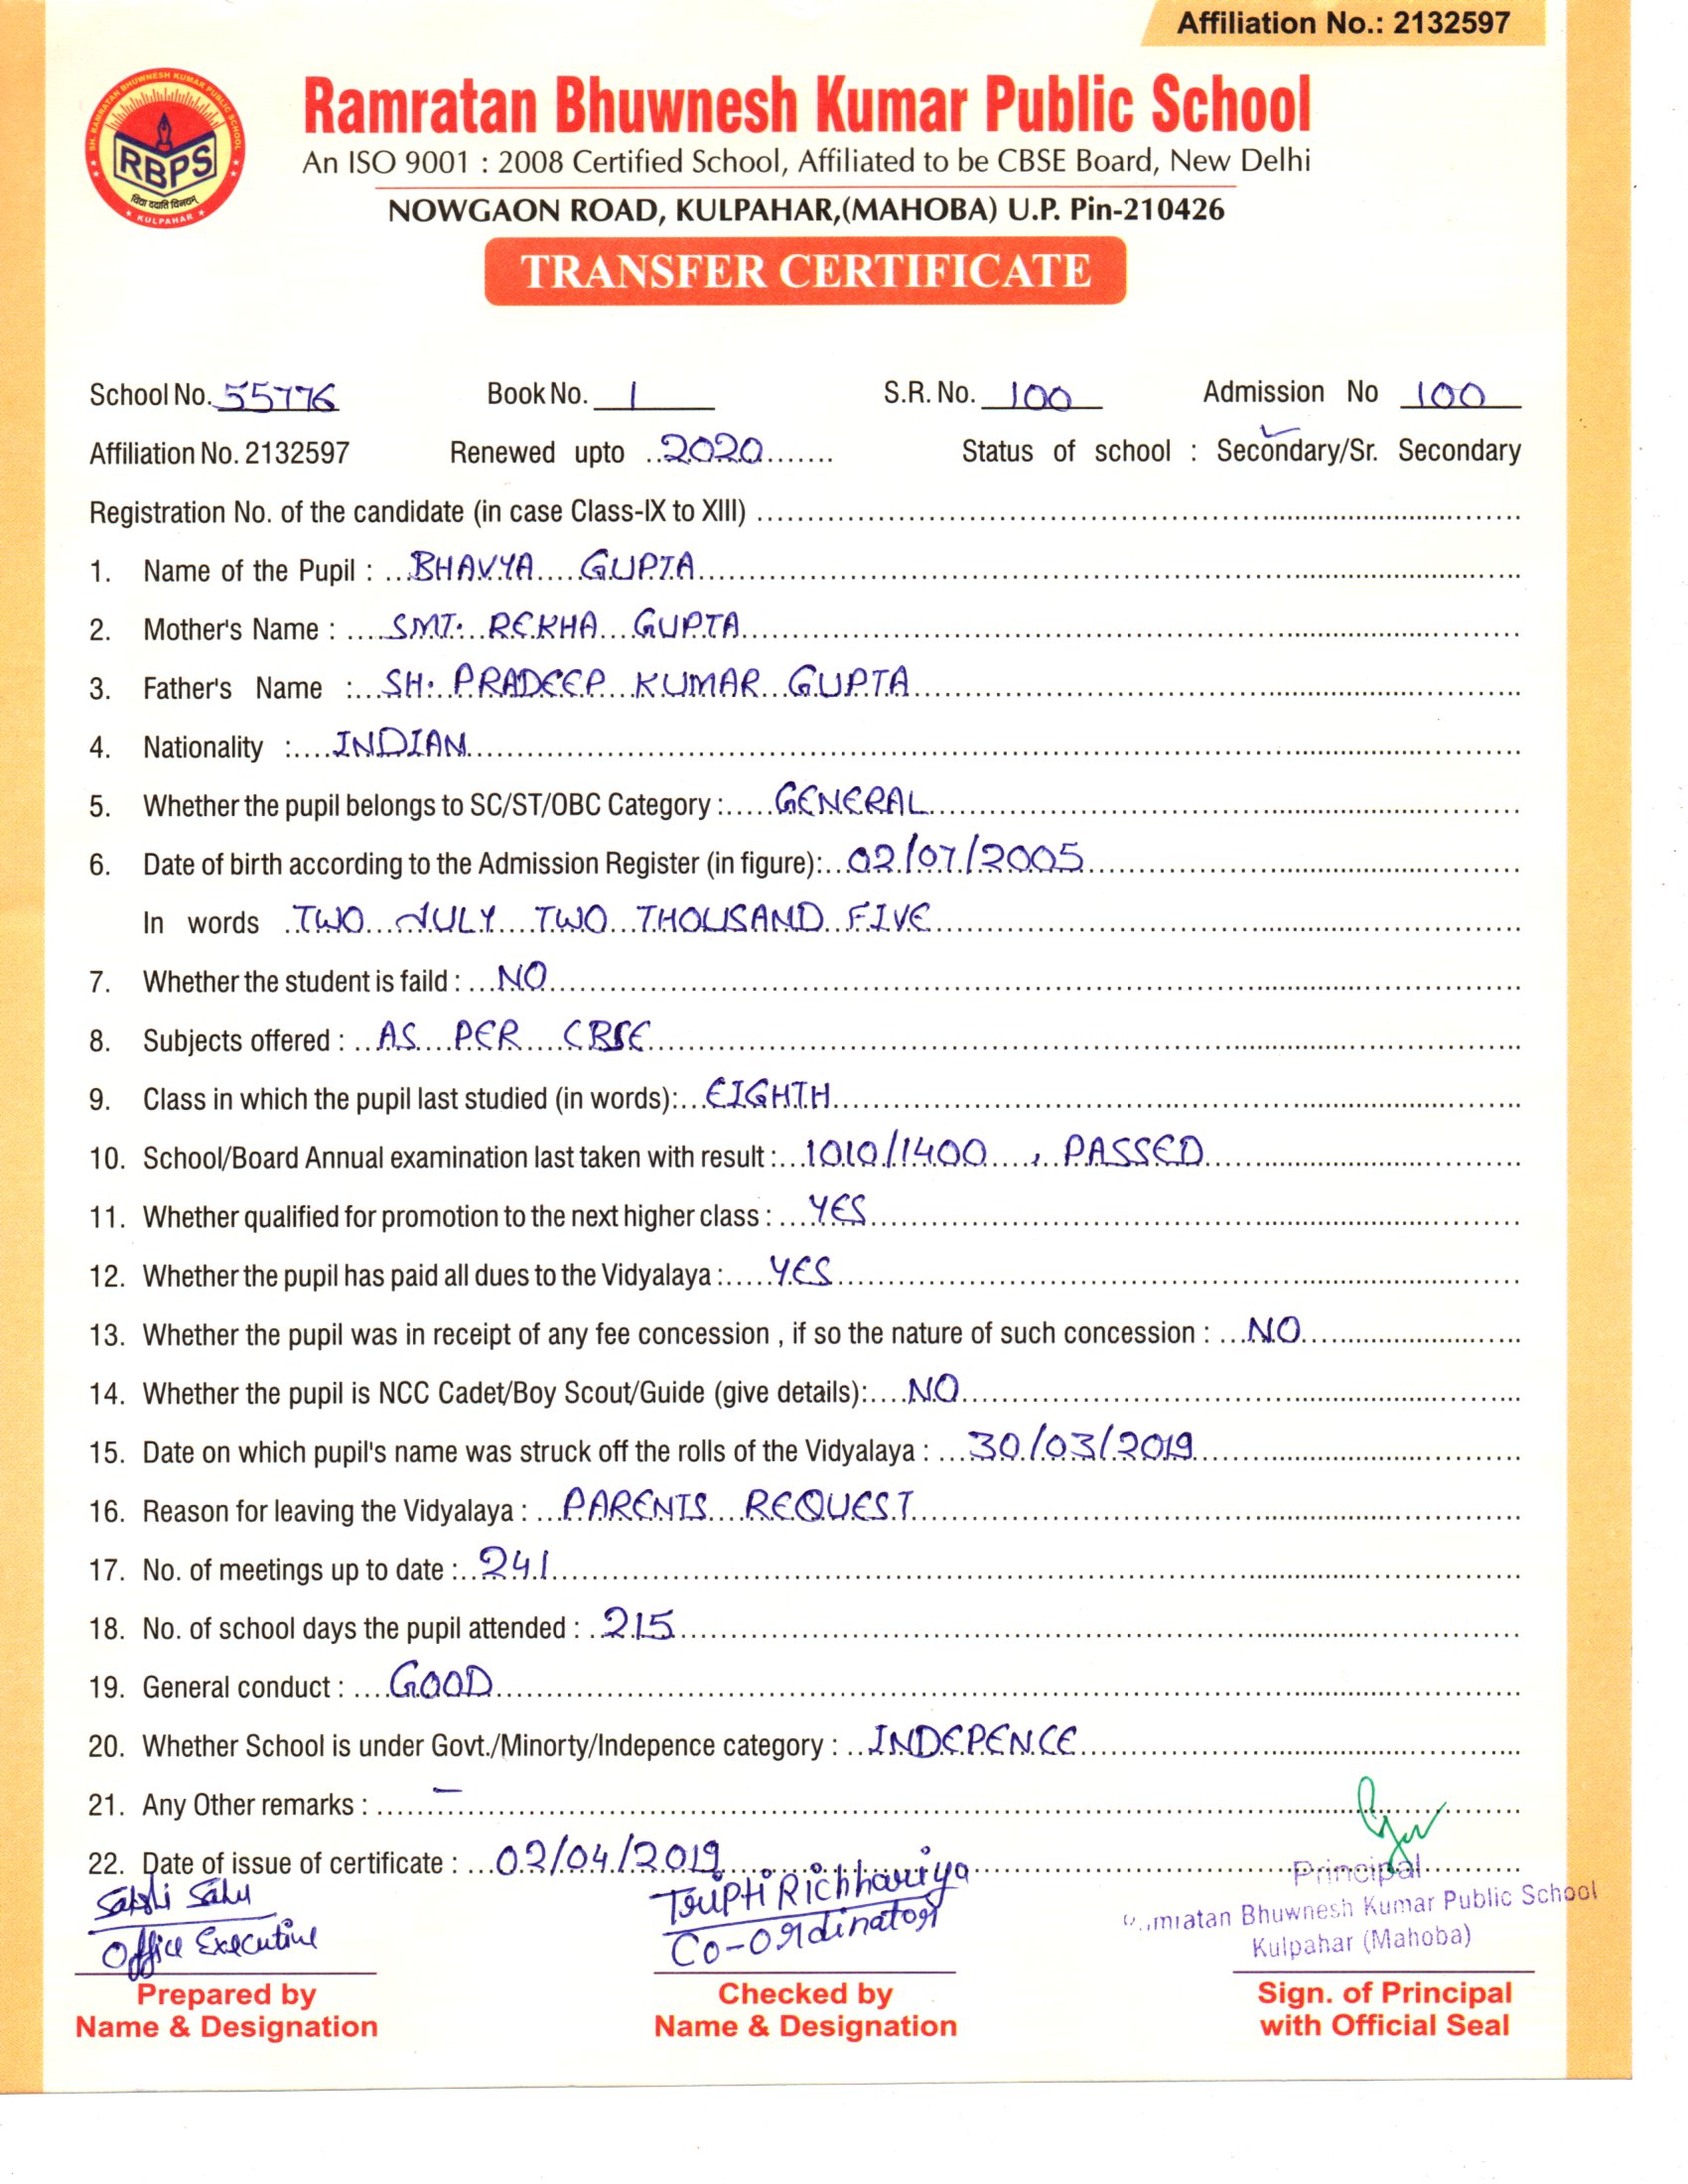 Affiliation No.: 2132597
SH. RAMRATAN BHUWNESH KUMAR PUBLIC SCHOOL
RBPS
विद्या ददाति विनयम्
KULPAHAR
Ramratan Bhuwnesh Kumar Public School
An ISO 9001 : 2008 Certified School, Affiliated to be CBSE Board, New Delhi
NOWGAON ROAD, KULPAHAR,(MAHOBA) U.P. Pin-210426
TRANSFER CERTIFICATE
School No. 55776 Book No. 1 S.R. No. 100 Admission No 100
Affiliation No. 2132597 Renewed upto 2020 Status of school : Secondary/Sr. Secondary
Registration No. of the candidate (in case Class-IX to XIII)
1. Name of the Pupil : BHAVYA GUPTA
2. Mother's Name : SMT. REKHA GUPTA
3. Father's Name : SH. PRADEEP KUMAR GUPTA
4. Nationality : INDIAN
5. Whether the pupil belongs to SC/ST/OBC Category : GENERAL
6. Date of birth according to the Admission Register (in figure): 02/07/2005
In words TWO JULY TWO THOUSAND FIVE
7. Whether the student is faild : NO
8. Subjects offered : AS PER CBSE
9. Class in which the pupil last studied (in words): EIGHTH
10. School/Board Annual examination last taken with result : 1010/1400 , PASSED
11. Whether qualified for promotion to the next higher class : YES
12. Whether the pupil has paid all dues to the Vidyalaya : YES
13. Whether the pupil was in receipt of any fee concession , if so the nature of such concession : NO
14. Whether the pupil is NCC Cadet/Boy Scout/Guide (give details): NO
15. Date on which pupil's name was struck off the rolls of the Vidyalaya : 30/03/2019
16. Reason for leaving the Vidyalaya : PARENTS REQUEST
17. No. of meetings up to date : 241
18. No. of school days the pupil attended : 215
19. General conduct : GOOD
20. Whether School is under Govt./Minorty/Indepence category : INDEPENCE
21. Any Other remarks : –
22. Date of issue of certificate : 02/04/2019
Sakshi Sahu
Office Executive
Prepared by
Name & Designation
Tripti Richhariya
Co-ordinator
Checked by
Name & Designation
Principal
Bhuwnesh Kumar Public School
Kulpahar (Mahoba)
Sign. of Principal
with Official Seal